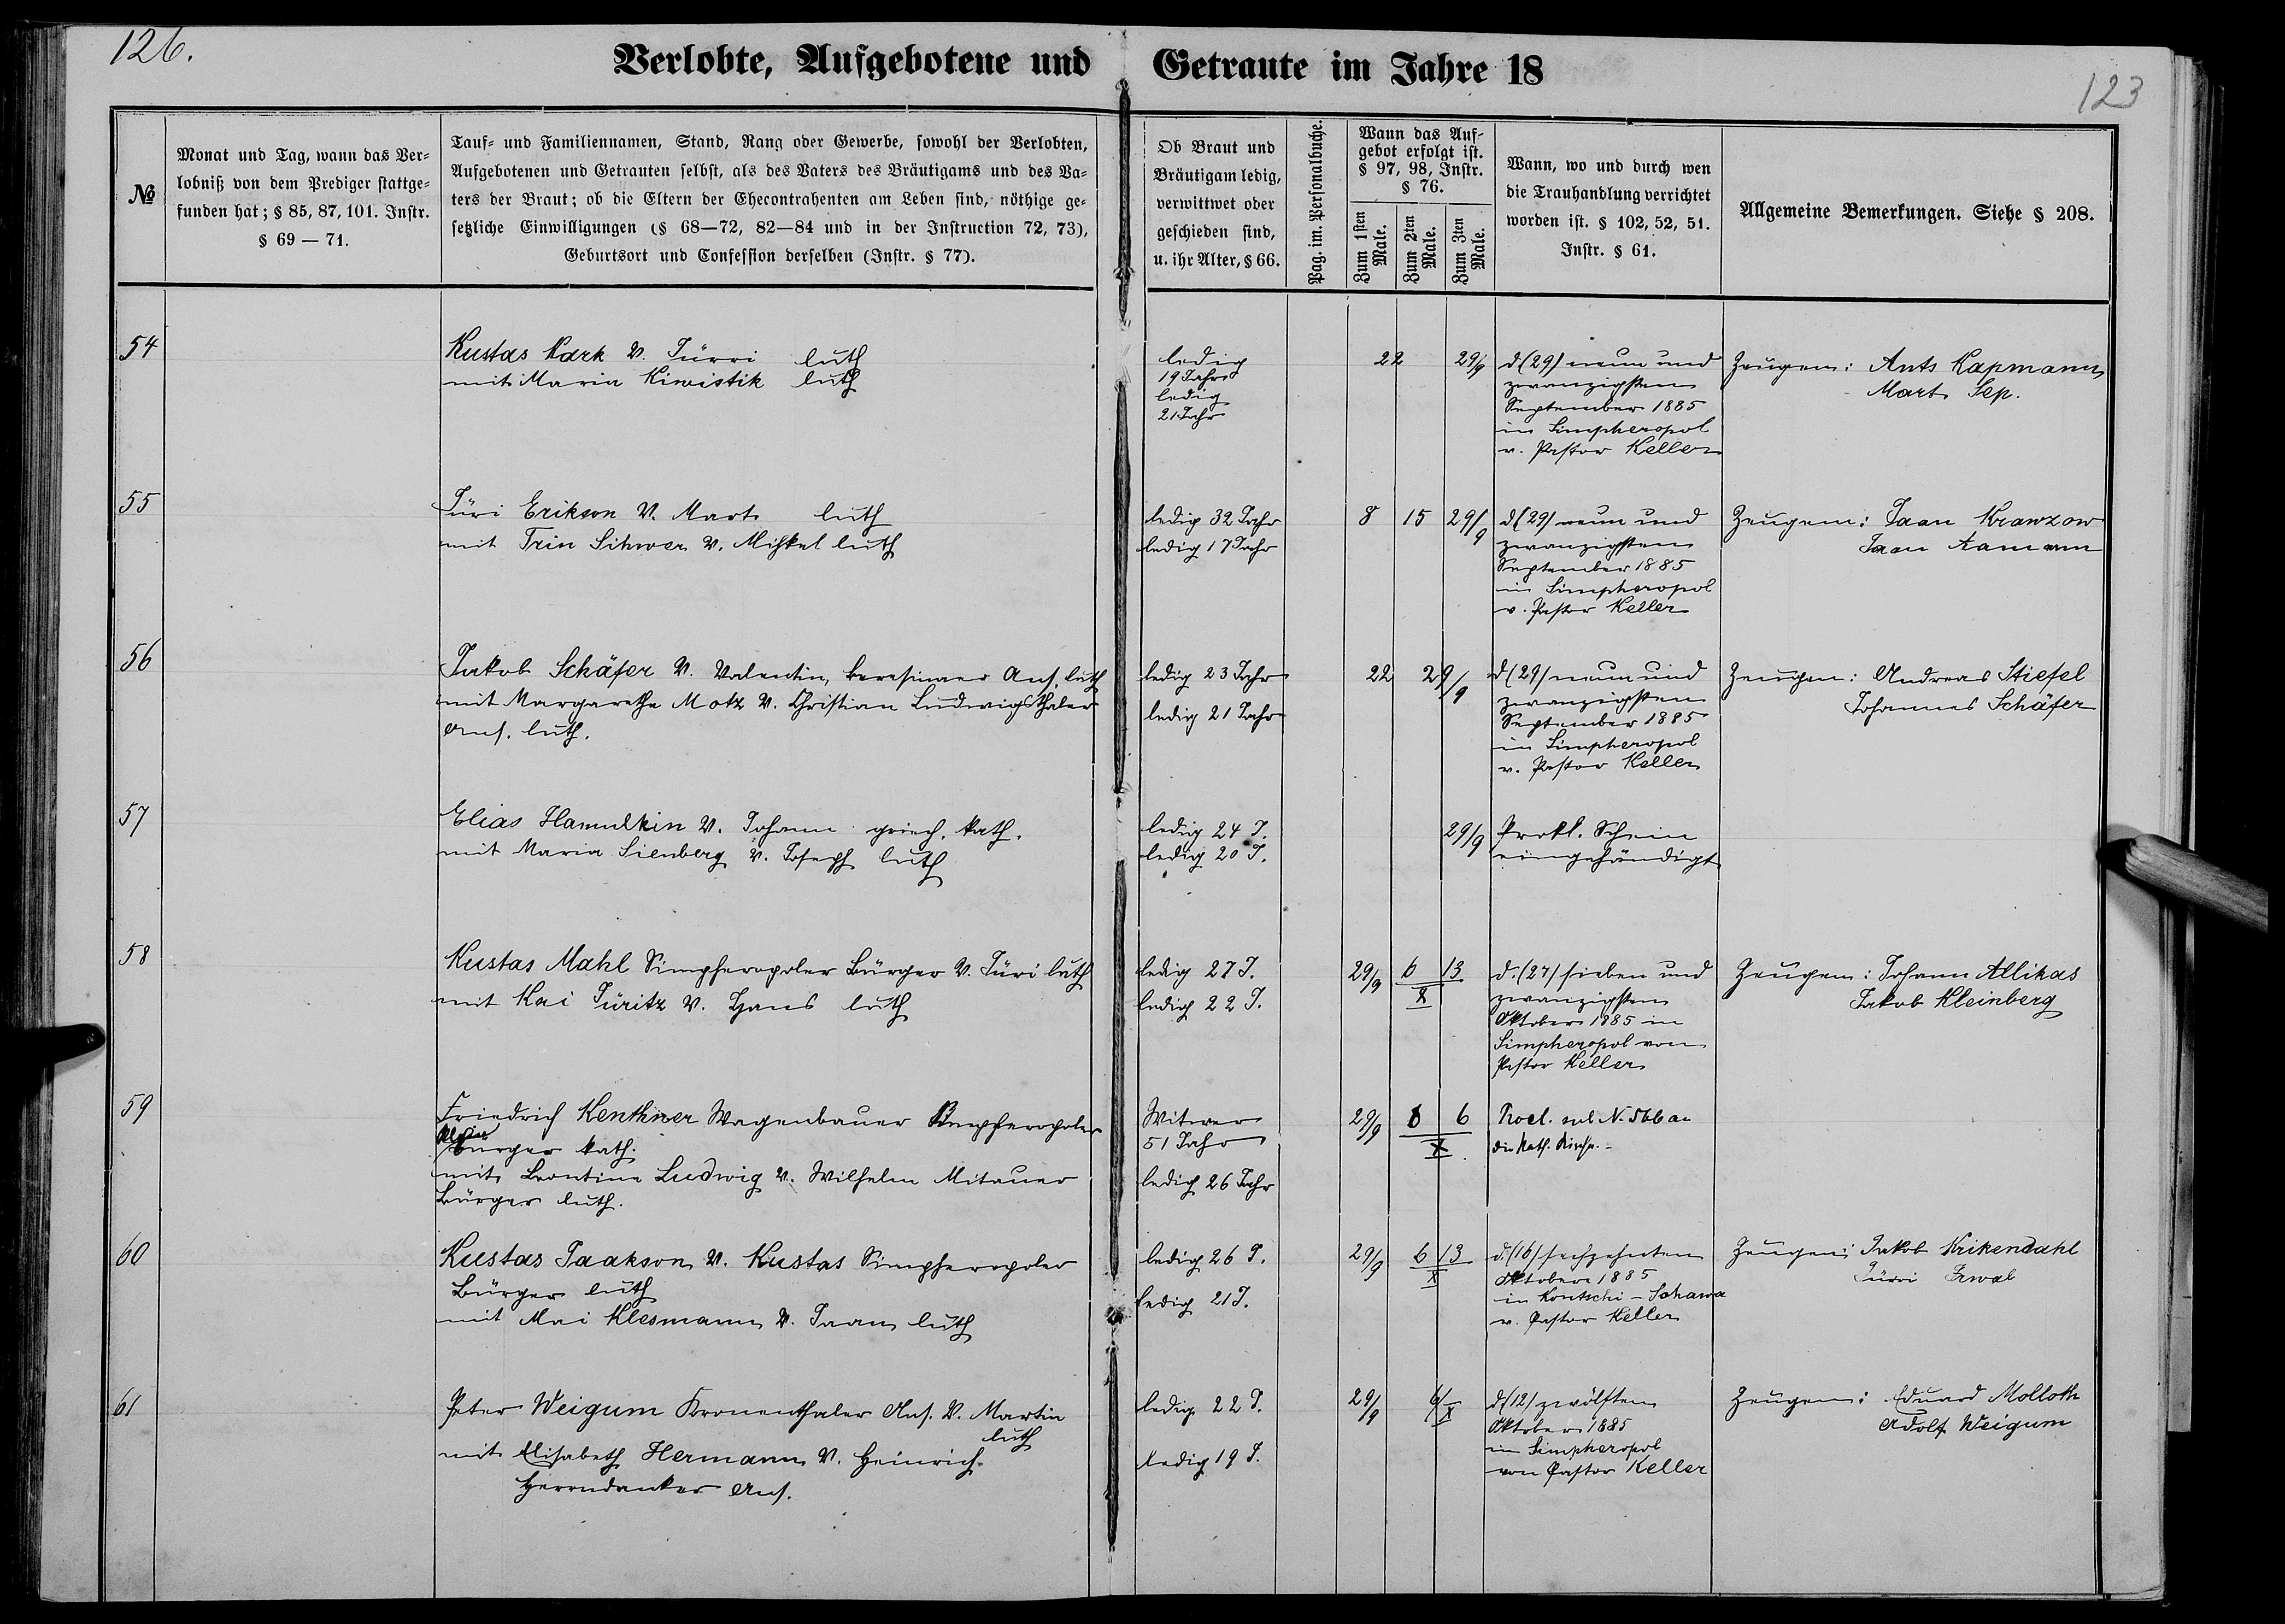 126.
Verlobte, Aufgebotene und Getraute im Jahre 18
123
№
Monat und Tag, wann das Ver-
lobniß von dem Prediger stattge-
funden hat; § 85, 87, 101. Instr.
§ 69 — 71.
Tauf- und Familiennamen, Stand, Rang oder Gewerbe, sowohl der Verlobten,
Aufgebotenen und Getrauten selbst, als des Vaters des Bräutigams und des Va-
ters der Braut; ob die Eltern der Ehecontrahenten am Leben sind, nöthige ge-
setzliche Einwilligungen (§ 68—72, 82—84 und in der Instruction 72, 73),
Geburtsort und Confession derselben (Instr. § 77).
Ob Braut und
Bräutigam ledig,
verwittwet oder
geschieden sind,
u. ihr Alter, § 66.
Pag. im. Personalbuche.
Wann das Auf-
gebot erfolgt ist.
§ 97, 98, Instr.
§ 76.
Zum 1sten Male.
Zum 2ten Male.
Zum 3ten Male.
Wann, wo und durch wen
die Trauhandlung verrichtet
worden ist. § 102, 52, 51.
Instr. § 61.
Allgemeine Bemerkungen. Siehe § 208.
54
Kustas Kark V. Jürri luth
mit Maria Kiwistik luth
ledig
19 Jahr
ledig
21 Jahr
22 29/9
d (29) neun und
zwanzigsten
September 1885
in Simpheropol
v. Pastor Keller
Zeugen: Ants Kapmann
Mart Sep.
55
Jüri Erikson V. Mart luth
mit Trin Sihwer V. Mihkel luth
ledig 32 Jahr
ledig 17 Jahr
8 15 29/9
d (29) neun und
zwanzigsten
September 1885
in Simpheropol
v. Pastor Keller
Zeugen: Jaan Krawzow
Jaan Aamann
56
Jakob Schäfer V. Valentin, beresinaer Ans. luth
mit Margaretha Motz V. Christian Ludwigsthaler
Ans. luth.
ledig 23 Jahr
ledig 21 Jahr
22 29/9
d (29) neun und
zwanzigsten
September 1885
in Simpheropol
v. Pastor Keller
Zeugen: Andreas Stiefel
Johannes Schäfer
57
Elias Hamulkin V. Johann griech. kath.
mit Maria Sienberg V. Joseph luth
ledig 24 J.
ledig 20 J.
29/9
Prokl. Schein
eingehändigt
58
Kustas Mahl Simpheropoler Bürger V. Jüri luth
mit Kai Jüritz V. Hans luth
ledig 27 J.
ledig 22 J.
29/9 6 13
X
d. (27) sieben und
zwanzigsten
Oktober 1885 in
Simpheropol von
Pastor Keller
Zeugen: Johann Allikas
Jakob Kleinberg
59
Friedrich Kenthner Wagenbauer Simpheropoler
Bürger kath.
mit Leontine Ludwig V. Wilhelm Mitauer
Bürger luth.
Witwer
51 Jahr
ledig 26 Jahr
29/9 6
X
Procl. sub N. 566 an
die Kath. Kirche. -
60
Kustas Jaakson V. Kustas Simpheropoler
Bürger luth
mit Mai Klesmann V. Jaan luth
ledig 26 J.
ledig 21 J.
29/9 6 13
X
d. (16) sechzehnten
Oktober 1885
in Kontschi - Schawa
v. Pastor Keller
Zeugen: Jakob Krikendahl
Jürri Irwal
61
Peter Weigum Kronenthaler Ans. V. Martin
luth
mit Elisabeth Hermann V. Heinrich
Ans.
ledig 22 J.
ledig 19 J.
29/9 6/X
d (12) zwölften
Oktober 1885
in Simpheropol
von Pastor Keller
Zeugen: Eduard Molloth
Adolf Weigum